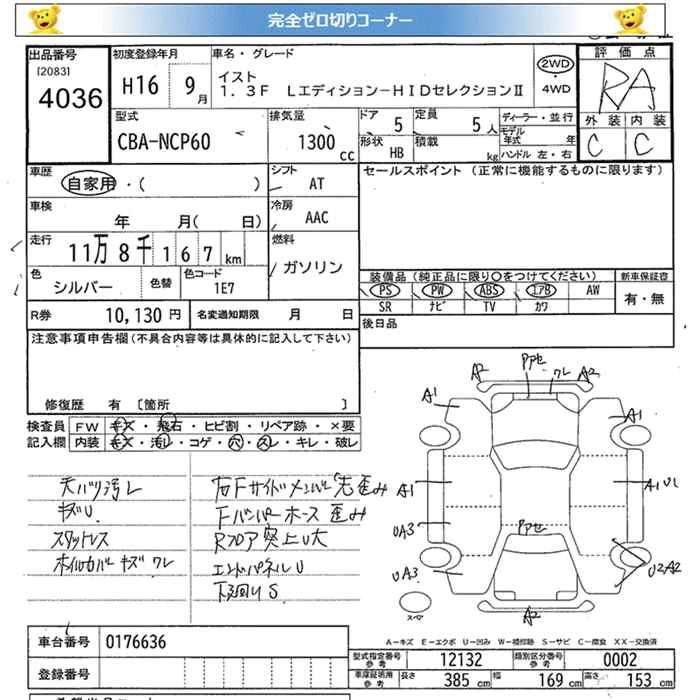 完全ゼロ切りコーナー
出品番号
[2083]
4036
初度登録年月
H16 9月
車名・グレード
イスト
1.3F LエディションーHIDセレクションⅡ
2WD
・
4WD
評価点
RA
外装 内装
C C
型式
CBA-NCP60
排気量
1300 cc
ドア
5
定員
5人
形状
HB
積載
kg
ディーラー・並行
モデル
年式 年
ハンドル 左・右
車歴
自家用・( )
シフト
AT
車検
年 月( 日)
冷房
AAC
走行
11万8千167 km
燃料
ガソリン
色
シルバー
色替
色コード
1E7
R券
10,130 円
名変通知期限 月 日
セールスポイント (正常に機能するものに限ります)
装備品(純正品に限り○をつけてください)
新車保証書
PS PW ABS エアB AW
SR ナビ TV カワ
有・無
後日品
注意事項申告欄(不具合内容等は具体的に記入して下さい)
修復歴 有 〔箇所 〕
検査員 FW キズ・飛石・ヒビ割・リペア跡・×要
記入欄 内装 キズ・汚レ・コゲ・穴・スレ・キレ・破レ
天バリ汚レ
キズU
スタットレス
ホイルカバーキズ ワレ
右Fサイドメンバー先歪み
Fバンパーホース歪み
Rフロア突上U大
エンドパネルU
下回りS
A2 PPセ ワレ A2
A1 A1
A1 A1 U
UA3 PPセ
UA3 U2 A2
A2
スペア
A－キズ E－エクボ U－凹み W－補修跡 S－サビ C－腐食 XX－交換済
車台番号 0176636
登録番号
型式指定番号
参考
12132
類別区分番号
参考
0002
車庫証明用
参考
長さ 385 cm 幅 169 cm 高さ 153 cm